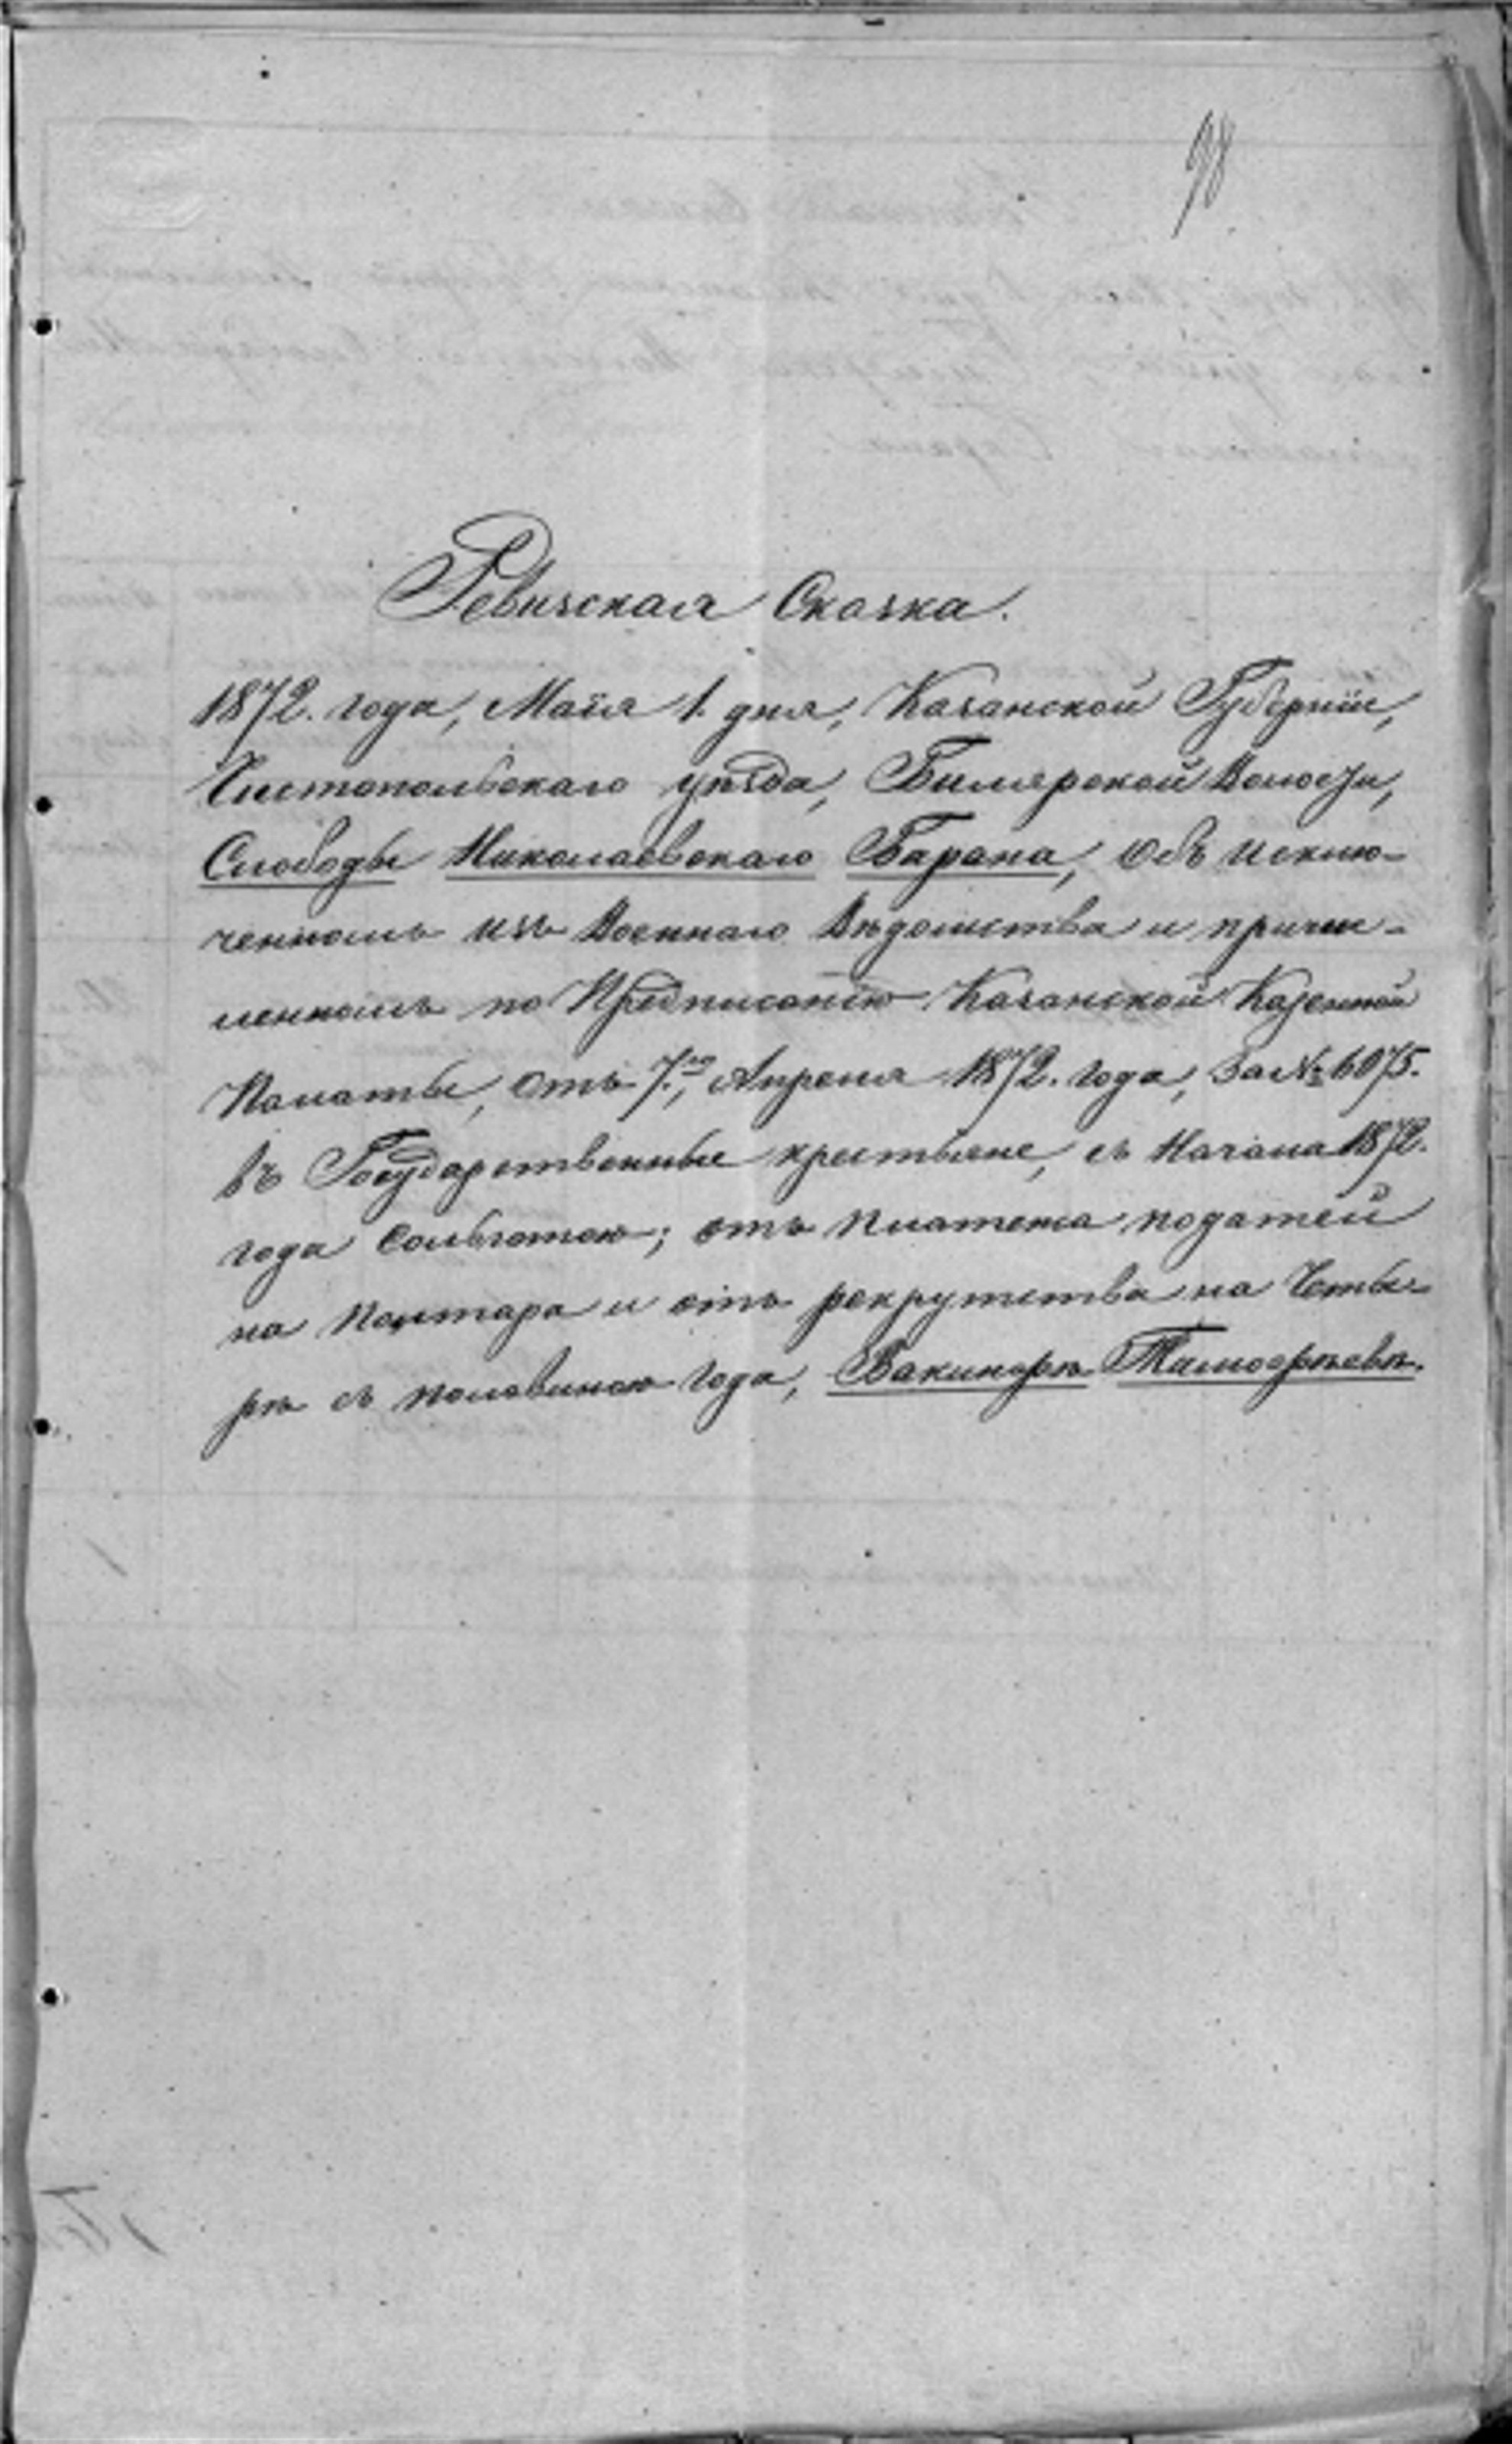 98
Ревизская Сказка.
1872. года, Маія 1. дня, Казанской Губерніи,
Чистопольскаго уѣзда, Билярской Волости,
Слободы Николаевскаго Барана, Объ исклю-
ченномъ изъ Военнаго Вѣдомства и причи-
сленномъ по Предписанію Казанской Казенной
Палаты, отъ 7.го Апреля 1872. года, За № 6075.
въ Государственные крестьяне, съ Начала 1872.
года сольготою; отъ платежа податей
на полтара и отъ рекрутства на Четы-
рѣ съ половиною года,